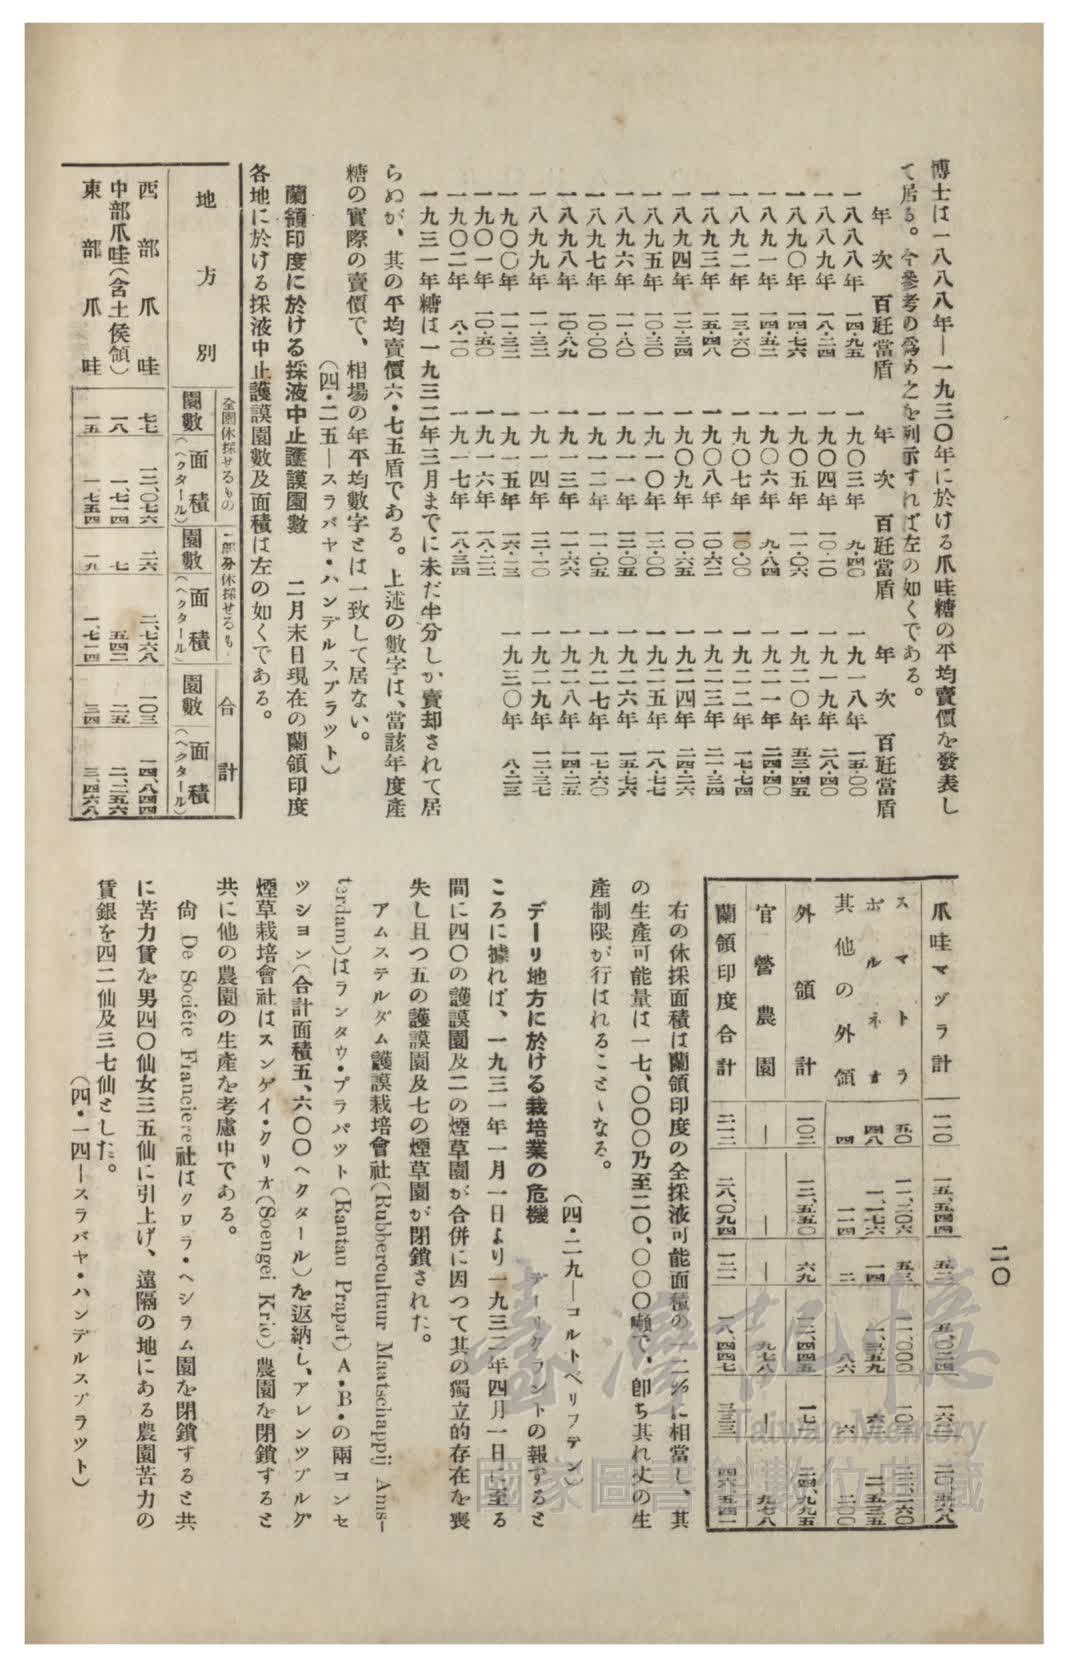 二〇
博士は一八八八年—一九三〇年に於ける爪哇糖の平均賣價を發表し
て居る。今參考の爲め之を列示すれば左の如くである。
年次 百瓩當盾 年次 百瓩當盾 年次 百瓩當盾
一八八八年 一四・九五 一九〇三年 九・四〇 一九一八年 一五・〇〇
一八八九年 一八・二四 一九〇四年 一〇・二〇 一九一九年 二八・四〇
一八九〇年 一四・七六 一九〇五年 一一・〇六 一九二〇年 五三・四五
一八九一年 一四・五二 一九〇六年 九・八四 一九二一年 二四・四〇
一八九二年 一三・六〇 一九〇七年 一〇・〇〇 一九二二年 一七・七四
一八九三年 一五・四八 一九〇八年 一〇・六二 一九二三年 二一・三四
一八九四年 一二・三四 一九〇九年 一〇・六五 一九二四年 二四・二六
一八九五年 一〇・二〇 一九一〇年 一二・〇〇 一九二五年 一八・七七
一八九六年 一一・八〇 一九一一年 一三・〇五 一九二六年 一五・七六
一八九七年 一〇・〇〇 一九一二年 一一・〇五 一九二七年 一七・六〇
一八九八年 一〇・八九 一九一三年 一一・六六 一九二八年 一四・二五
一八九九年 一一・三二 一九一四年 一三・一〇 一九二九年 一二・三七
一九〇〇年 一一・三二 一九一五年 一六・二三 一九三〇年 八・二三
一九〇一年 一〇・五〇 一九一六年 一八・二二
一九〇二年 八・一〇 一九一七年 一八・三四
一九三一年糖は一九三二年三月までに未だ半分しか賣却されて居
らぬが、其の平均賣價六・七五盾である。上述の數字は、當該年度產
糖の實際の賣價で、相場の年平均數字とは一致して居ない。
(四・二五—スラバヤ・ハンデルスブラット)
蘭領印度に於ける採液中止護謨園數 二月末日現在の蘭領印度
各地に於ける採液中止護謨園數及面積は左の如くである。
地方別 全園休採せるもの 一部分休採せるも 合計
園數 面積(ヘクタール) 園數 面積(ヘクタール) 園數 面積(ヘクタール)
西部爪哇 七七 一二、〇七六 二六 二、七六八 一〇三 一四、八四四
中部爪哇(含土侯領) 一八 一、七一四 七 五四二 二五 二、二五六
東部爪哇 一五 一、七五四 一九 一、七一四 三四 三、四六八
爪哇マヅラ計 一一〇 一五、五四四 五二 五、〇二四 一六二 二〇、五六八
スマトラ 五〇 一一、二〇六 五三 一一、〇〇〇 一〇三 二二、二〇六
ボルネオ 四八 一、一七六 一四 一、三五九 六二 二、五三五
其他の外領 四 一一四 二 八六 六 二〇〇
外領計 一〇二 一二、五五〇 六九 一二、四四五 一七一 二四、九九五
官營農園 — — — 九七八 — 九七八
蘭領印度合計 二一二 二八、〇九四 一二一 一八、四四七 三三三 四六、五四一
右の休採面積は蘭領印度の全採液可能面積の一二%に相當し、其
の生產可能量は一七、〇〇〇乃至二〇、〇〇〇噸で、卽ち其れ丈の生
產制限が行はれることゝなる。
(四・二九—コルトベリフテン)
デーリ地方に於ける栽培業の危機 デーリクラントの報ずると
ころに據れば、一九三一年一月一日より一九三二年四月一日に至る
間に四〇の護謨園及二の煙草園が合併に因つて其の獨立的存在を喪
失し且つ五の護謨園及七の煙草園が閉鎖された。
アムステルダム護謨栽培會社(Rubbercultuur Maatschappij Ams-
terdam)はランタウ・プラパット(Rantau Prapat)A・B・の兩コンセ
ツシヨン(合計面積五、六〇〇ヘクタール)を返納し、アレンツブルグ
煙草栽培會社はスンゲイ・クリオ(Soengei Krio)農園を閉鎖すると
共に他の農園の生產を考慮中である。
尙 De Société Franciere社はクワラ・ヘシラム園を閉鎖すると共
に苦力賃を男四〇仙女三五仙に引上げ、遠隔の地にある農園苦力の
賃銀を四二仙及三七仙とした。
(四・一四—スラバヤ・ハンデルスブラツト)
臺灣記憶
Taiwan Memory
國家圖書館數位典藏